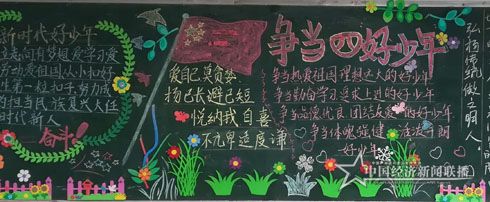 新时代好少年
有梦想 爱学习 爱
劳动 爱祖国 从小扣好
生第一粒扣子 努力成
的担当民族复兴大任
时代新人
奋斗!
爱自己莫贪婪
扬己长避己短
悦纳我自喜
不亢卑适度谦
争当四好少年
争当热爱祖国理想远大的好少年
争当勤奋学习追求上进的好少年
争当品德优良团结友爱的好少年
争当体魄强健活泼开朗
好少年
弘扬传统做之明人
中国经济新闻联播